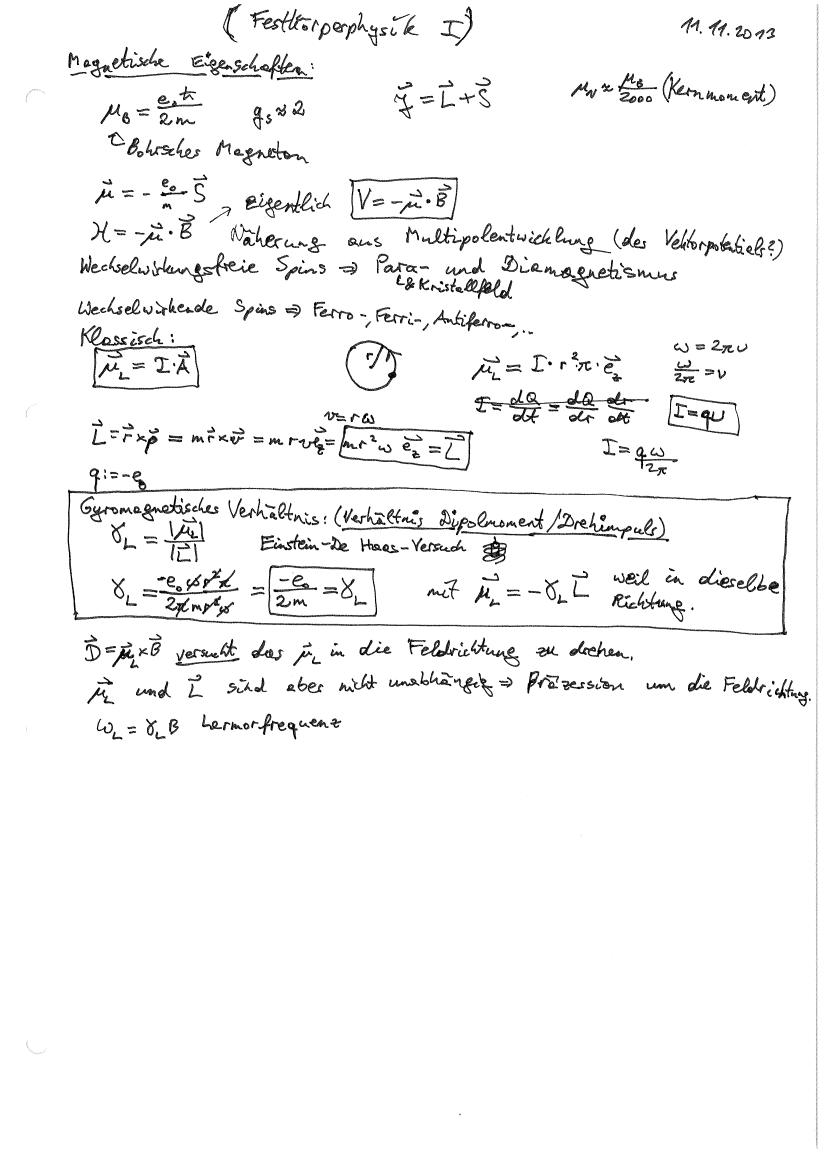 (Festkörperphysik I) 11.11.2013
Magnetische Eigenschaften:
μ_B = e₀ħ/2m g_s ≈ 2 J⃗ = L⃗ + S⃗ μ_N ≈ μ_B/2000 (Kernmoment)
Bohrsches Magneton
μ⃗ = - e₀/m S⃗ ↗ eigentlich V = -μ⃗·B⃗
H = -μ⃗·B⃗ Näherung aus Multipolentwicklung (des Vektorpotentials?)
Wechselwirkungsfreie Spins ⇒ Para- und Diamagnetismus
& Kristallfeld
Wechselwirkende Spins ⇒ Ferro-, Ferri-, Antiferro-,..
Klassisch:
μ⃗_L = I·A⃗ r μ⃗_L = I·r²π·e⃗_z ω = 2πν
ω/2π = ν
I = dQ/dt = dQ/dr dr/dt I = qν
v = rω
L⃗ = r⃗×p⃗ = mr⃗×v⃗ = mrve⃗_z = mr²ω e⃗_z = L⃗ I = qω/2π
q := -e₀
Gyromagnetisches Verhältnis: (Verhältnis Dipolmoment/Drehimpuls)
γ_L = |μ⃗_L|/|L⃗| Einstein-De Haas-Versuch
γ_L = -e₀ωr²π/2πmr²ω = -e₀/2m = γ_L mit μ⃗_L = -γ_L L⃗ weil in dieselbe
Richtung.
D⃗ = μ⃗_L×B⃗ versucht das μ⃗_L in die Feldrichtung zu drehen.
μ⃗_L und L⃗ sind aber nicht unabhängig ⇒ Präzession um die Feldrichtung.
ω_L = γ_L B Larmorfrequenz